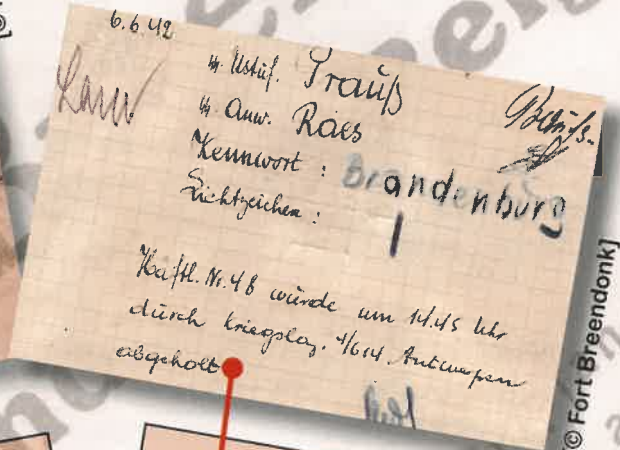 6.6.42
Ustuf. Prauß
Anw. Raes
Kennwort : Brandenburg
Lichtzeichen : |
Häftl. Nr. 48 würde um 14.45 Uhr
durch Kriegslaz. 4/614 Antwerpen
abgeholt
© Fort Breendonk]